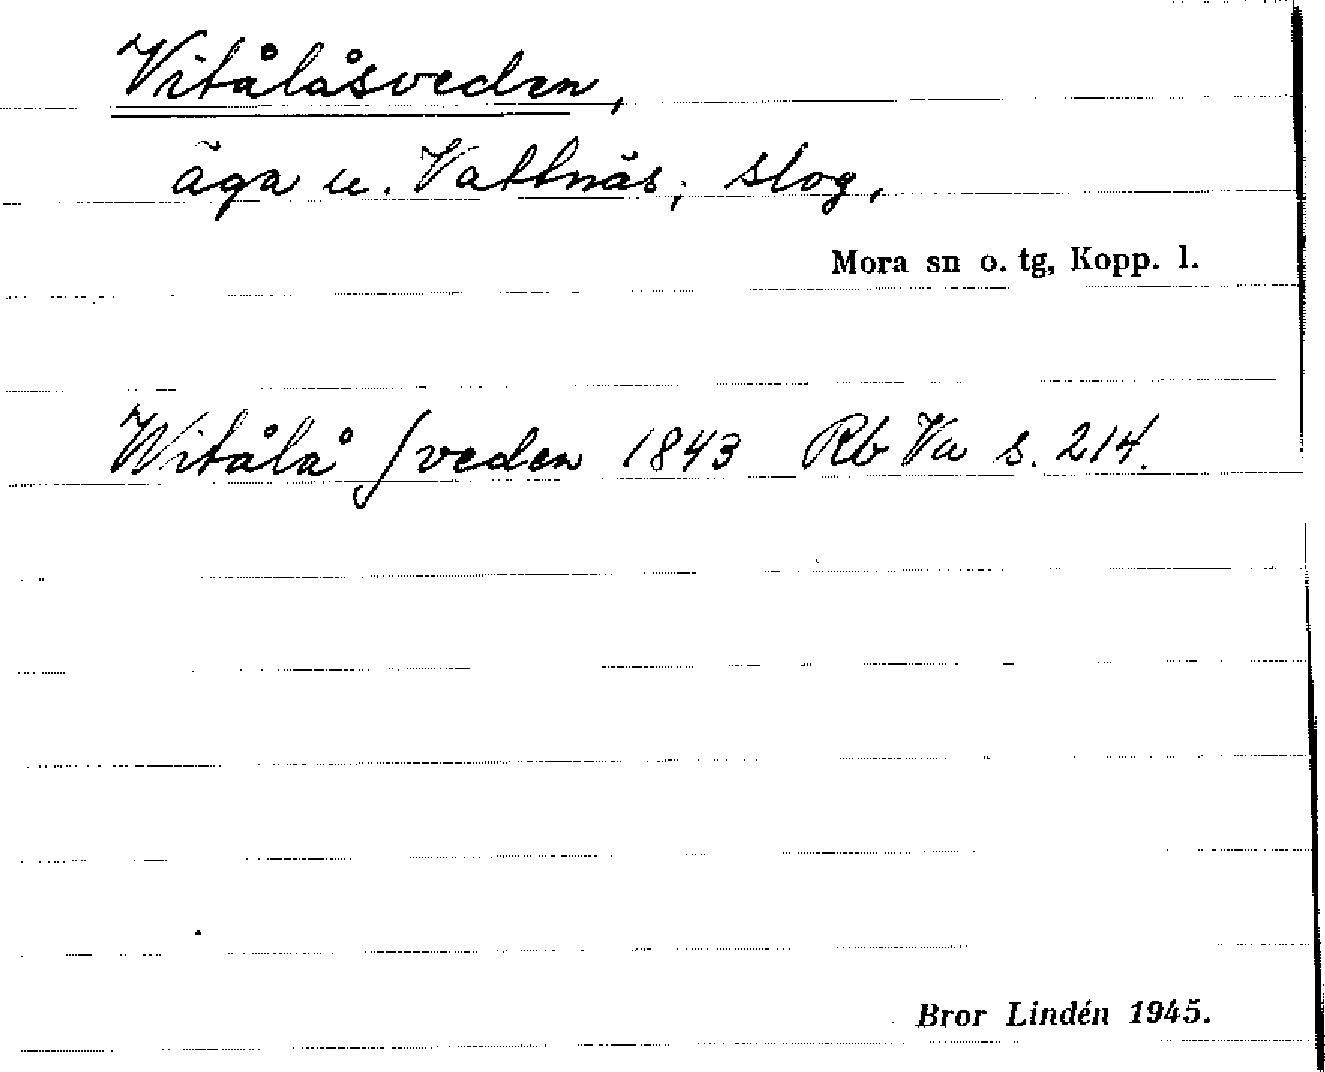 Vitålåsveden,
äga u. Vattnäs; slog,
Mora sn o. tg, Kopp. l.
Witålå ſveden 1843 Rb Va s. 214.
Bror Lindén 1945.